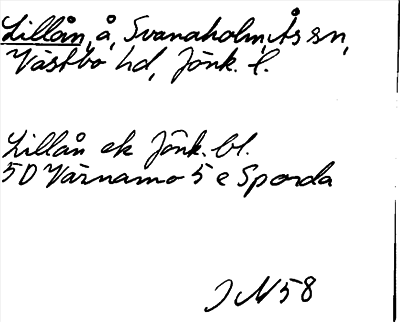 Lillån, å, Svanaholm, Ås sn,
Västbo hd, Jönk. l.
Lillån ek Jönk. bl.
5D Värnamo 5 e Sporda
J N 58